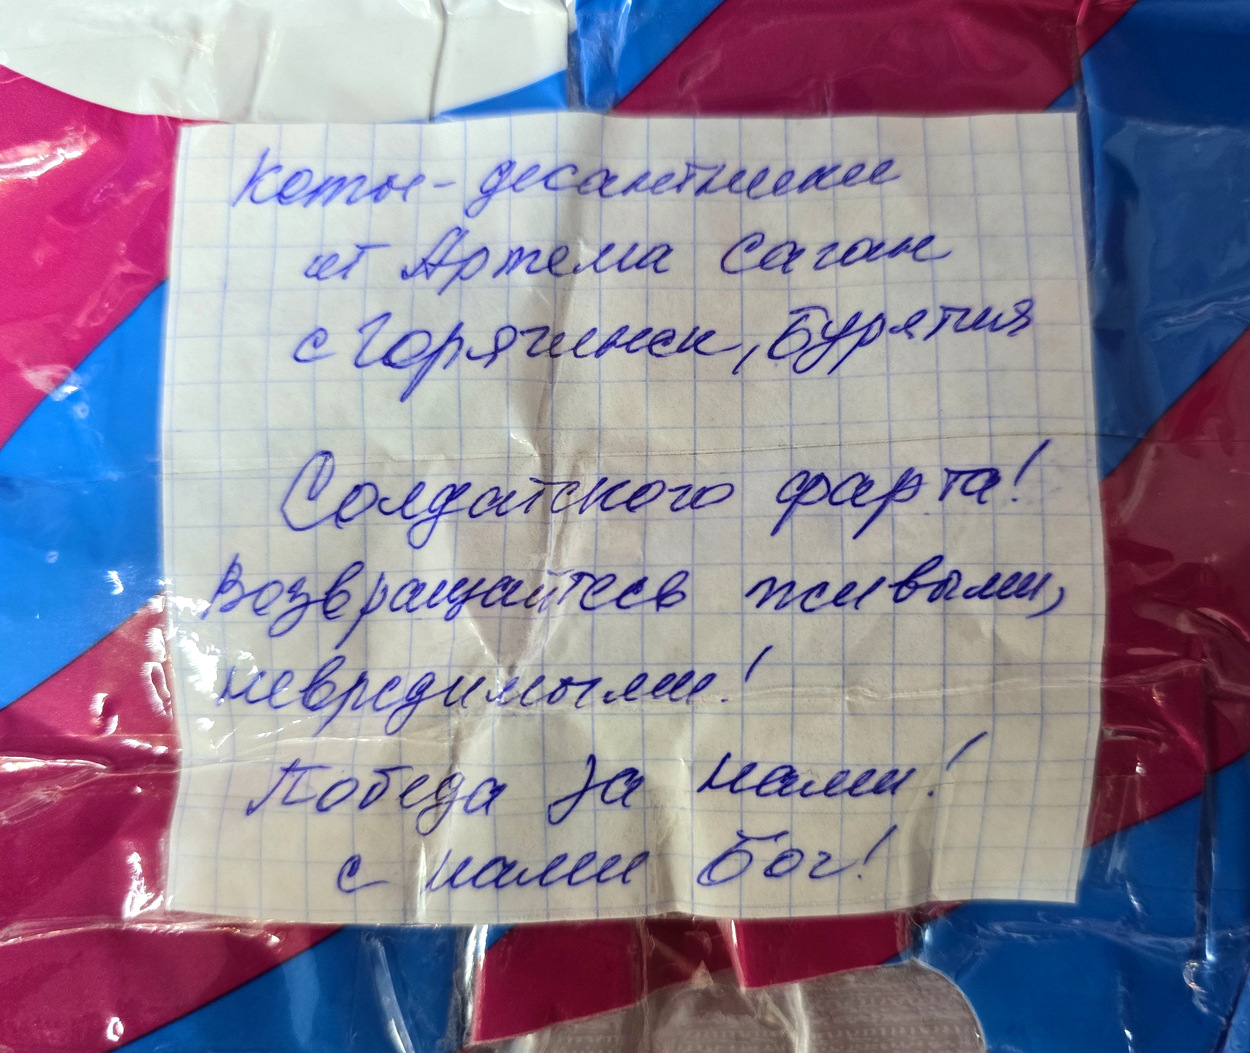 Коты-десантники
от Артема Саган
с Горячинск, Бурятия
Солдатского фарта!
Возвращайтесь живыми,
невредимыми!
Победа за нами!
с нами Бог!